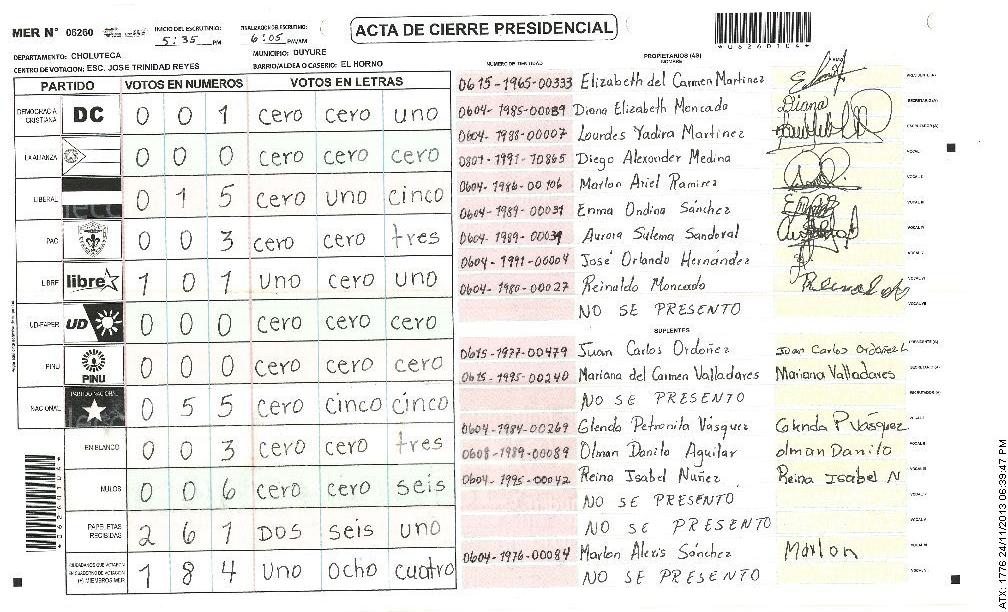 MER N° 06260 INICIO DEL ESCRUTINIO: 5:35 PM FINALIZACION DEL ESCRUTINIO: 6:05 PM/AM ACTA DE CIERRE PRESIDENCIAL
DEPARTAMENTO: CHOLUTECA MUNICIPIO: DUYURE
CENTRO DE VOTACION: ESC. JOSE TRINIDAD REYES BARRIO/ALDEA O CASERIO: EL HORNO
PARTIDO VOTOS EN NUMEROS VOTOS EN LETRAS
DEMOCRACIA CRISTIANA DC 0 0 1 cero cero uno
LA ALIANZA 0 0 0 cero cero cero
LIBERAL 0 1 5 cero uno cinco
PAC 0 0 3 cero cero tres
LIBRE libre 1 0 1 uno cero uno
UD-FAPER UD 0 0 0 cero cero cero
PINU PINU 0 0 0 cero cero cero
NACIONAL PARTIDO NACIONAL 0 5 5 cero cinco cinco
EN BLANCO 0 0 3 cero cero tres
NULOS 0 0 6 cero cero seis
PAPELETAS RECIBIDAS 2 6 1 DOS seis uno
CIUDADANOS QUE VOTARON EN CUADERNO DE VOTACION (+) MIEMBROS MER 1 8 4 uno ocho cuatro
NUMERO DE IDENTIDAD PROPIETARIOS (AS) NOMBRE
0615-1965-00333 Elizabeth del Carmen Martinez
0604-1985-00089 Diana Elizabeth Moncado Diana
0604-1988-00007 Lourdes Yadira Martinez
0801-1991-10865 Diego Alexander Medina
0604-1986-00106 Marlon Ariel Ramirez
0604-1989-00031 Enma Ondina Sánchez
0604-1989-00034 Aurora Sulema Sandoval
0604-1991-00004 José Orlando Hernández
0604-1980-00027 Reinaldo Moncado
NO SE PRESENTO
SUPLENTES
0615-1977-00479 Juan Carlos Ordoñez Juan Carlos Ordoñez L
0615-1995-00240 Mariana del Carmen Valladares Mariana Valladares
NO SE PRESENTO
0604-1984-00269 Glenda Petronila Vásquez Glenda P Vásquez
0608-1989-00089 Olman Danilo Aguilar olman Danilo
0604-1995-00042 Reina Isabel Nuñez Reina Isabel N
NO SE PRESENTO
NO SE PRESENTO
0604-1976-00084 Marlon Alexis Sánchez Marlon
NO SE PRESENTO
ATX: 1776 24/11/2013 06:39:47 PM